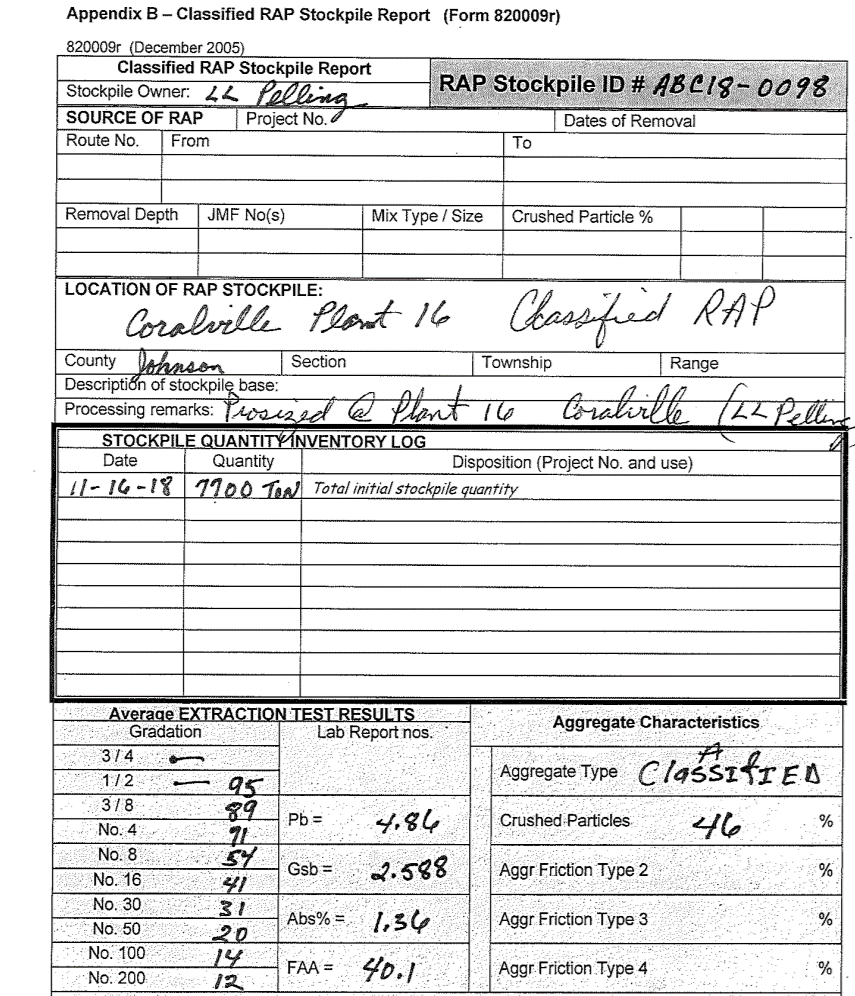 Appendix B – Classified RAP Stockpile Report (Form 820009r)
820009r (December 2005)
Classified RAP Stockpile Report
RAP Stockpile ID # ABC18-0098
Stockpile Owner: LL Pelling
SOURCE OF RAP Project No. Dates of Removal
Route No. From To
Removal Depth JMF No(s) Mix Type / Size Crushed Particle %
LOCATION OF RAP STOCKPILE:
Coralville Plant 16 Classified RAP
County Johnson Section Township Range
Description of stockpile base:
Processing remarks: Prosized @ Plant 16 Coralville (LL Pelling
STOCKPILE QUANTITY/INVENTORY LOG
Date Quantity Disposition (Project No. and use)
11-16-18 7700 TON Total initial stockpile quantity
Average EXTRACTION TEST RESULTS
Aggregate Characteristics
Gradation Lab Report nos.
3/4
1/2 95
3/8 89
No. 4 71
No. 8 54
No. 16 41
No. 30 31
No. 50 20
No. 100 14
No. 200 12
Pb = 4.86
Gsb = 2.588
Abs% = 1.36
FAA = 40.1
Aggregate Type A ClASSIfIED
Crushed Particles 46 %
Aggr Friction Type 2 %
Aggr Friction Type 3 %
Aggr Friction Type 4 %